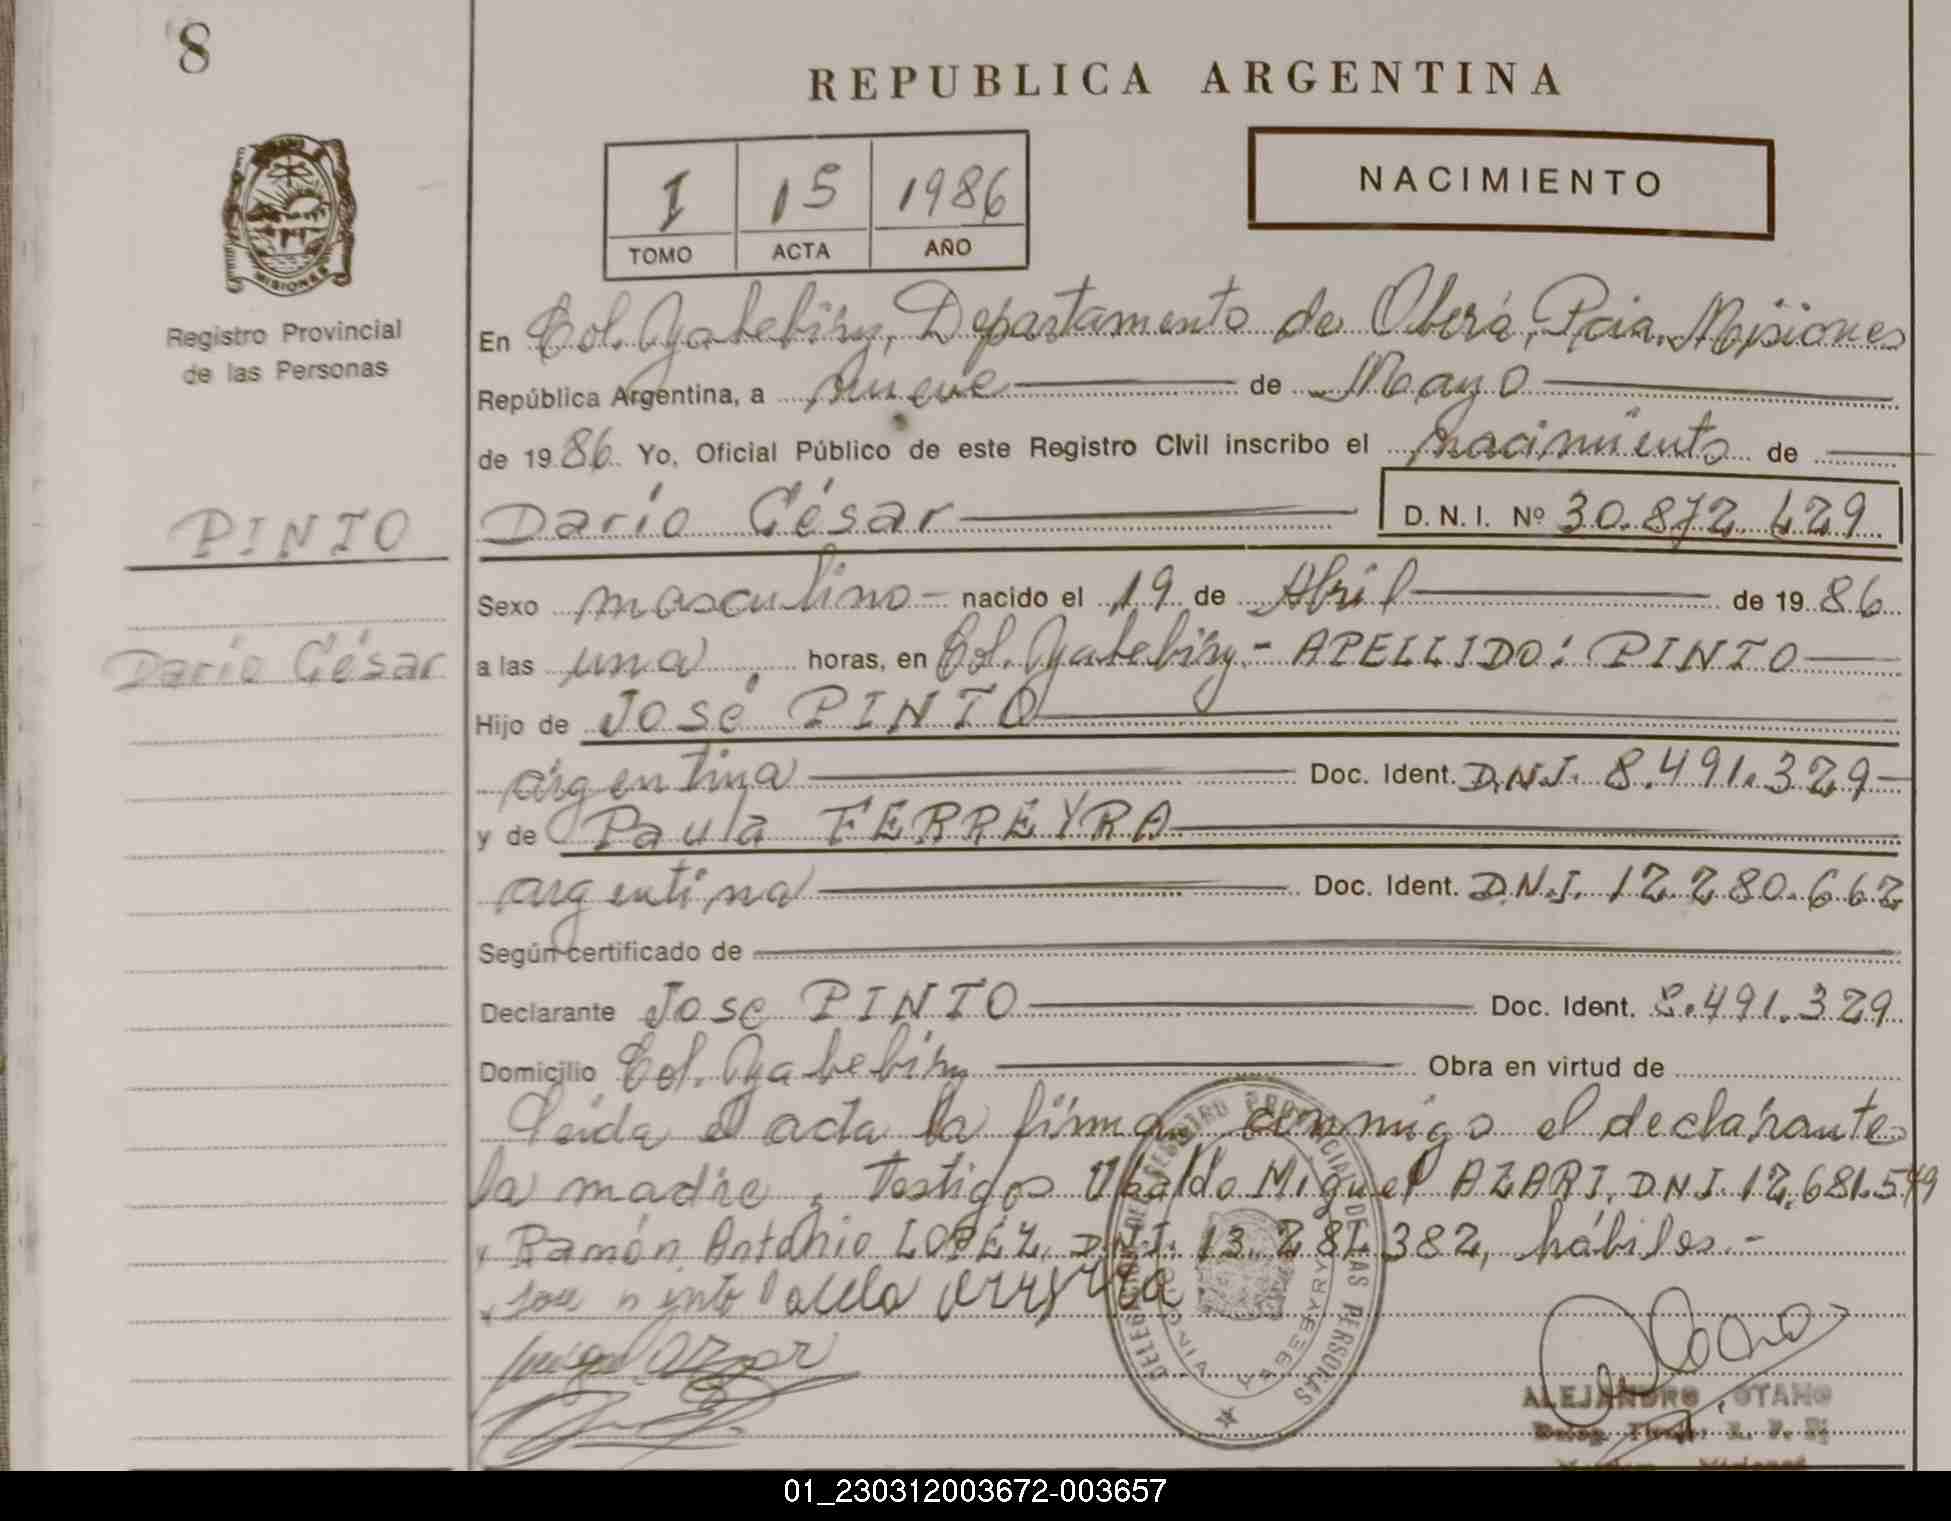 8
REPUBLICA ARGENTINA
I 15 1986
TOMO ACTA AÑO
NACIMIENTO
MISIONES
Registro Provincial
de las Personas
En Col. Yabebiry, Departamento de Oberá, Pcia. Misiones
República Argentina, a nueve de Mayo
de 1986 Yo, Oficial Público de este Registro Civil inscribo el nacimiento de
PINTO
Darío César D. N. I. Nº 30.872.429
Sexo masculino - nacido el 19 de Abril de 1986
Darío César
a las una, horas, en Col. Yabebiry - APELLIDO: PINTO
Hijo de José PINTO
argentina Doc. Ident. D.N.I. 8.491.329
y de Paula FERREYRA
argentina Doc. Ident. D.N.I. 12.280.662
Según certificado de
Declarante José PINTO Doc. Ident. 8.491.329
Domicilio Col. Yabebiry Obra en virtud de
Leída el acta la firman conmigo el declarante
la madre, testigos Ubaldo Miguel AZARI, D.N.I. 12.681.549
y Ramón Antonio LOPEZ, D.N.I. 13.281.382, hábiles.-
DELEGACION DEL REGISTRO PROVINCIAL DE LAS PERSONAS
COLONIA YABEBYRY
ALEJANDRO OTAÑO
01_230312003672-003657